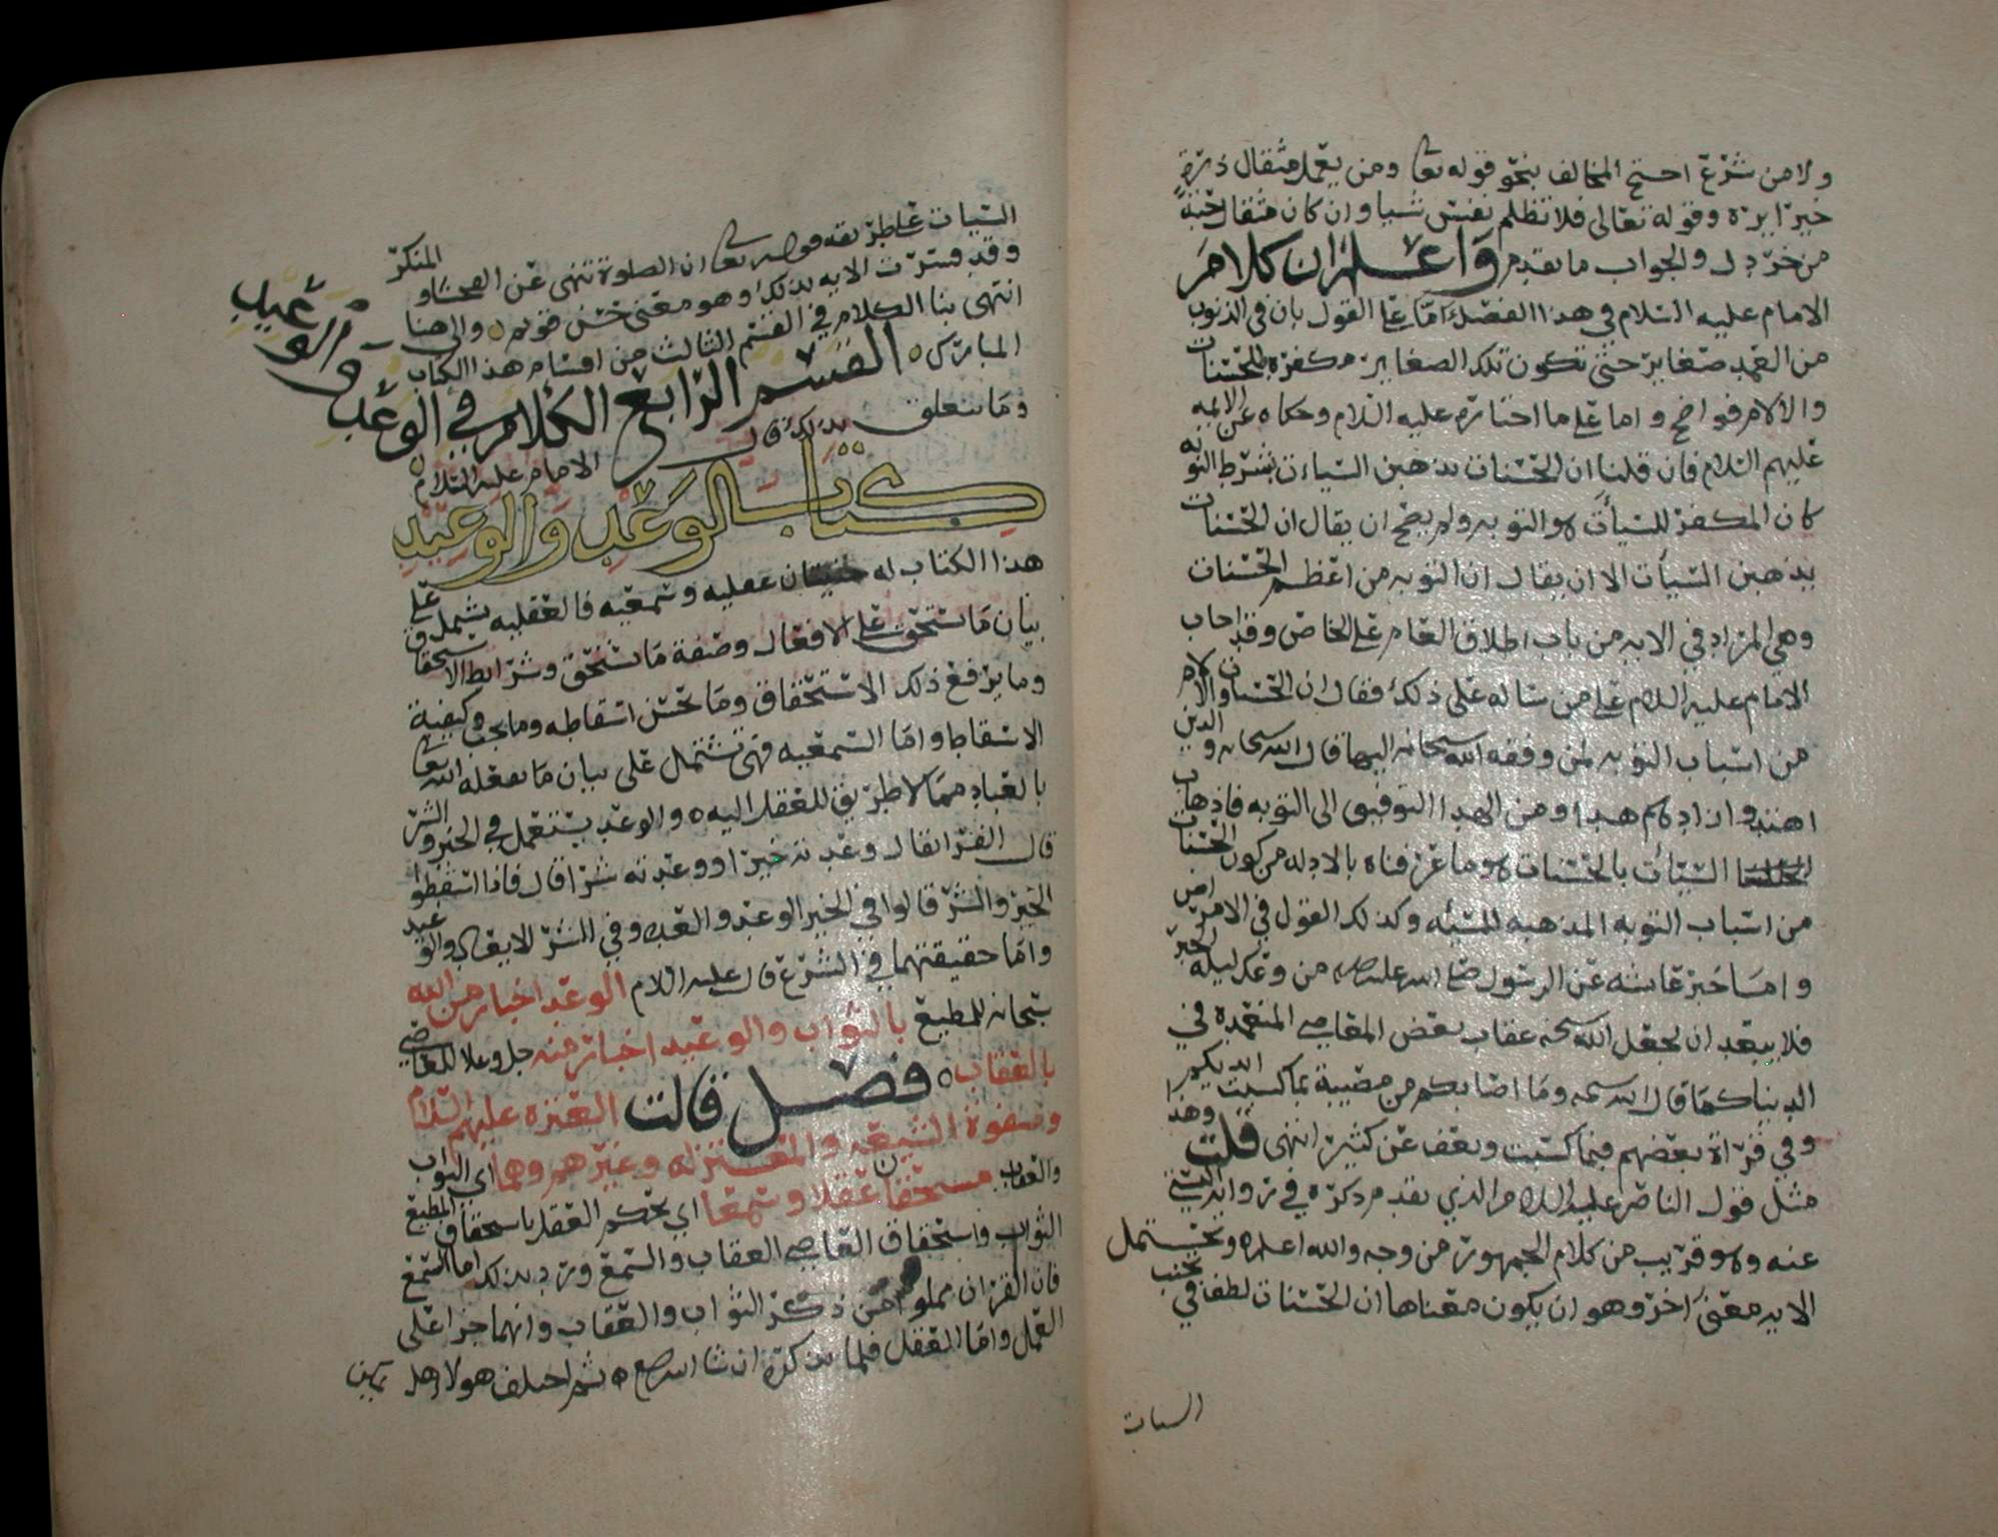 ولا من شرع احتج المخالف بنحو قوله تعا ومن يعمل مثقال ذرة
خيرا يره وقوله تعالى فلا تظلم نفس شيا وان كان مثقال حبة
من خردل والجواب ما تقدم واعلم ان كلام
الامام عليه السلام في هذا الفصل اما على القول بان في الذنوب
من العمد صغاير حتى تكون تلك الصغاير مكفرة بالحسنات
والالام فواضح واما على ما اختاره عليه السلام وحكاه عن الايمه
عليهم السلام فان قلنا ان الحسنات يذهبن السيات بشرط التوبه
كان المكفر للسيات هو التوبه ولم يصح ان يقال ان الحسنات
يذهبن السيات الا ان يقال ان التوبه من اعظم الحسنات
وهي المراد في الايه من باب اطلاق العام على الخاص وقد اجاب
الامام عليه السلام على من ساله على ذلك فقال ان الحسنات والالام
من اسباب التوبه لمن وفقه الله سبحانه اليها قال الله سبحانه والذين
اهتدوا زادهم هدا ومن الهدا التوفيق الى التوبه فاذهاب
السيات بالحسنات هو ما عرفناه بالادله من كون الحسنات
من اسباب التوبه المذهبه للسيئه وكذلك القول في الامراض
واما خبر عايشه عن الرسول صلى الله عليه من وعك ليله الخبر
فلا يبعد ان يجعل الله سبحنه عقاب بعض المعاصي المتعمدة في
الدنيا كما قال الله سبحنه وما اصابكم من مصيبة بما كسبت ايديكم
وفي قراة بعضهم فبما كسبت ويعف عن كثير انتهى قلت وهذا
مثل قول الناصر عليه السلام الذي تقدم ذكره في رواية البستي
عنه وهو قريب من كلام الجمهور من وجه والله اعلم ه وتحتمل
الايه معنى اخر وهو ان يكون معناها ان الحسنات لطف في تجنب
السيات
السيات على طريقه قوله تعا ان الصلوة تنهى عن الفحشا والمنكر
وقد فسرت الايه بذلك وهو معنى حسن قويم ه والى هنا
انتهى بنا الكلام في القسم الثالث من اقسام هذا الكتاب
المبارك ه القسم الرابع الكلام في الوعد والوعيد
وما يتعلق بذلك قال الامام عليه السلام
كتاب الوعد والوعيد
هذا الكتاب له عقليه وسمعيه فالعقليه يشمل على
بيان ما يستحق على الافعال وصفة ما يستحق وشرايط الاستحقاق
وما يرفع ذلك الاستحقاق وما يحسن اسقاطه وما يجب وكيفية
الاسقاط واما السمعيه فهي تشتمل على بيان ما يفعله الله تعا
بالعباد مما لا طريق للعقل اليه ه والوعد يستعمل في الخير والشر
قال الفرا يقال وعدته خيرا ووعدته شرا قال فاذا اسقطوا
الخير والشر قالوا في الخير الوعد والعده وفي الشر الايعاد والوعيد
واما حقيقتهما في الشرع قال عليه السلام الوعد اخبار من الله
سبحانه للمطيع بالثواب والوعيد اخبار منه جل وعلا للعاصي
بالعقاب ه فصل قالت العتره عليهم السلام
وصفوة الشيعه والمعتزله وغيرهم وهما اي الثواب
والعقاب مستحقان عقلا وسمعا اي يحكم العقل باستحقاق المطيع
الثواب واستحقاق العاصي العقاب والسمع ورد بذلك اما السمع
فان القران مملو من ذكر الثواب والعقاب وانهما جزا على
العمل واما العقل فلما نذكره ان شا الله ه ثم اختلف هولا هل